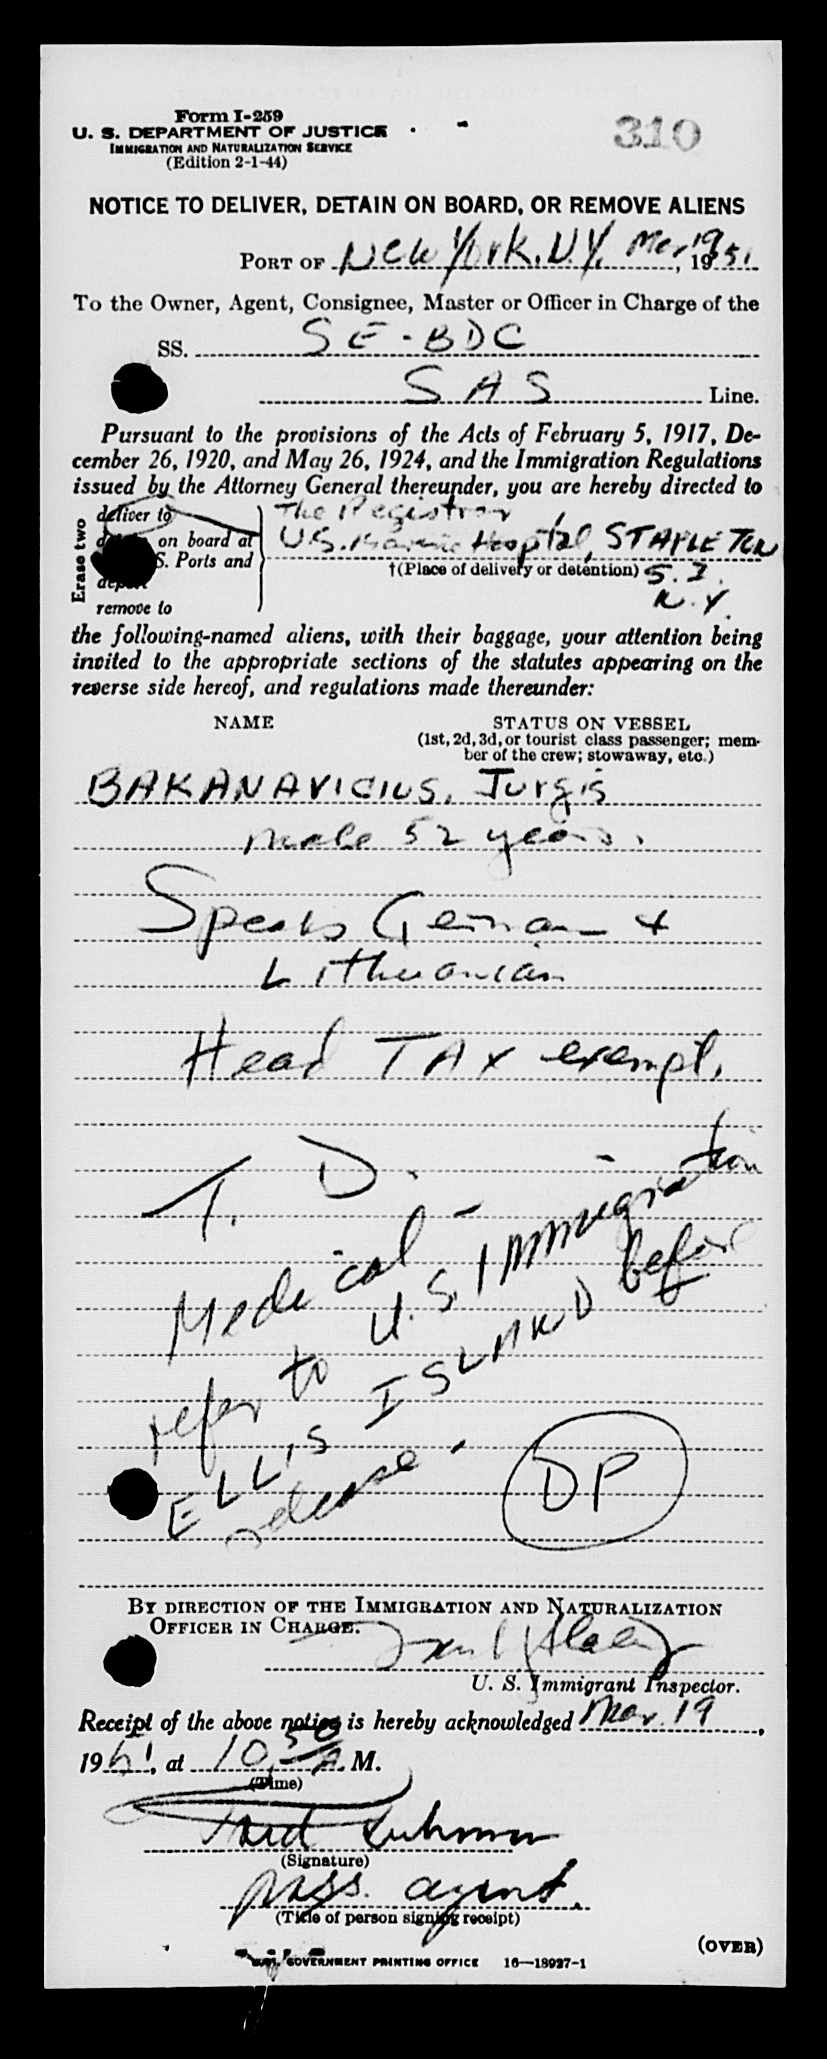 Form I-259
U. S. DEPARTMENT OF JUSTICE
IMMIGRATION AND NATURALIZATION SERVICE
(Edition 2-1-44)
310
NOTICE TO DELIVER, DETAIN ON BOARD, OR REMOVE ALIENS
PORT OF New York, N.Y. Mar 19, 1951
To the Owner, Agent, Consignee, Master or Officer in Charge of the
SS. SE-BDC
SAS Line.
Pursuant to the provisions of the Acts of February 5, 1917, De-
cember 26, 1920, and May 26, 1924, and the Immigration Regulations
issued by the Attorney General thereunder, you are hereby directed to
Erase two
deliver to
on board at
S. Ports and
deport
remove to
The Registrar
U.S. Marine Hospital, STAPLETON
†(Place of delivery or detention) S. I.
N. Y.
the following-named aliens, with their baggage, your attention being
invited to the appropriate sections of the statutes appearing on the
reverse side hereof, and regulations made thereunder:
NAME STATUS ON VESSEL
(1st, 2d, 3d, or tourist class passenger; mem-
ber of the crew; stowaway, etc.)
BAKANAVICIUS, Jurgis
male 52 years.
Speaks German +
Lithuanian
Head TAX exempt.
T. D.
Medical -
refer to U.S. Immigration
ELLIS ISLAND before
release.
DP
BY DIRECTION OF THE IMMIGRATION AND NATURALIZATION
OFFICER IN CHARGE.
U. S. Immigrant Inspector.
Receipt of the above notice is hereby acknowledged Mar. 19,
1951, at 10:50 A. M.
(Time)
(Signature)
pass. agent.
(Title of person signing receipt)
(OVER)
U. S. GOVERNMENT PRINTING OFFICE 16—18927-1